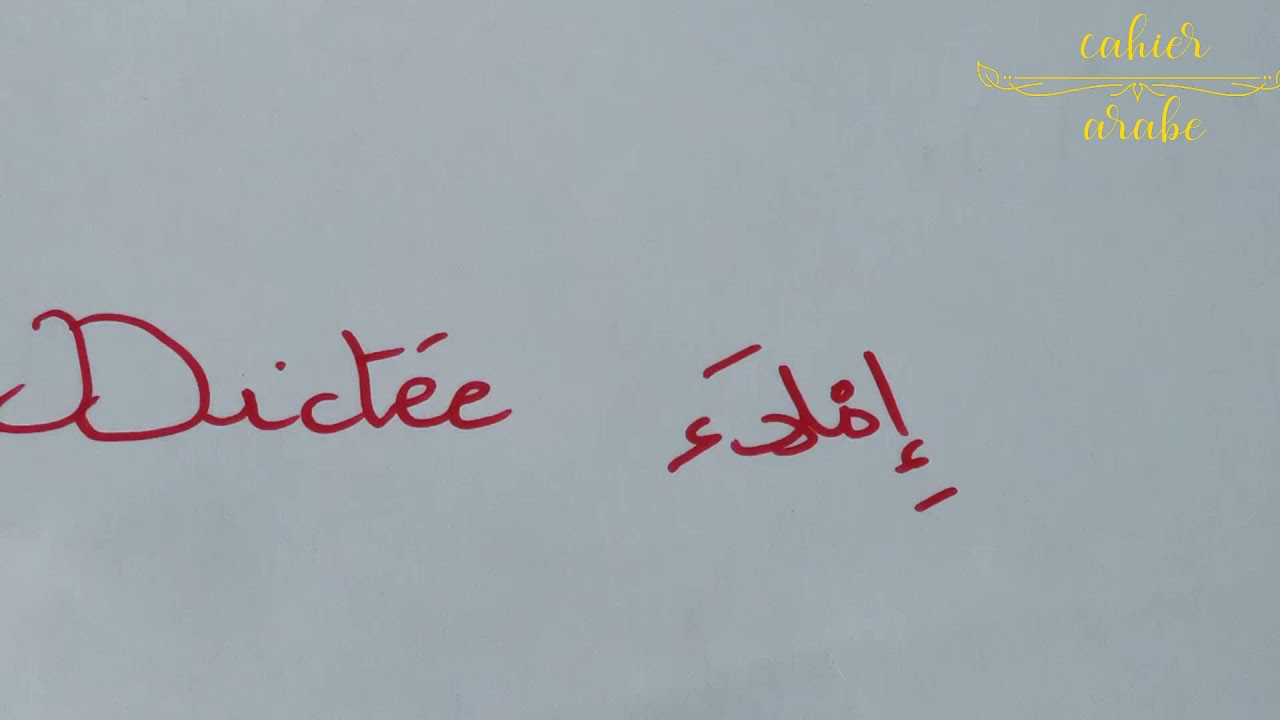 cahier
arabe
Dictée إمْلَاء